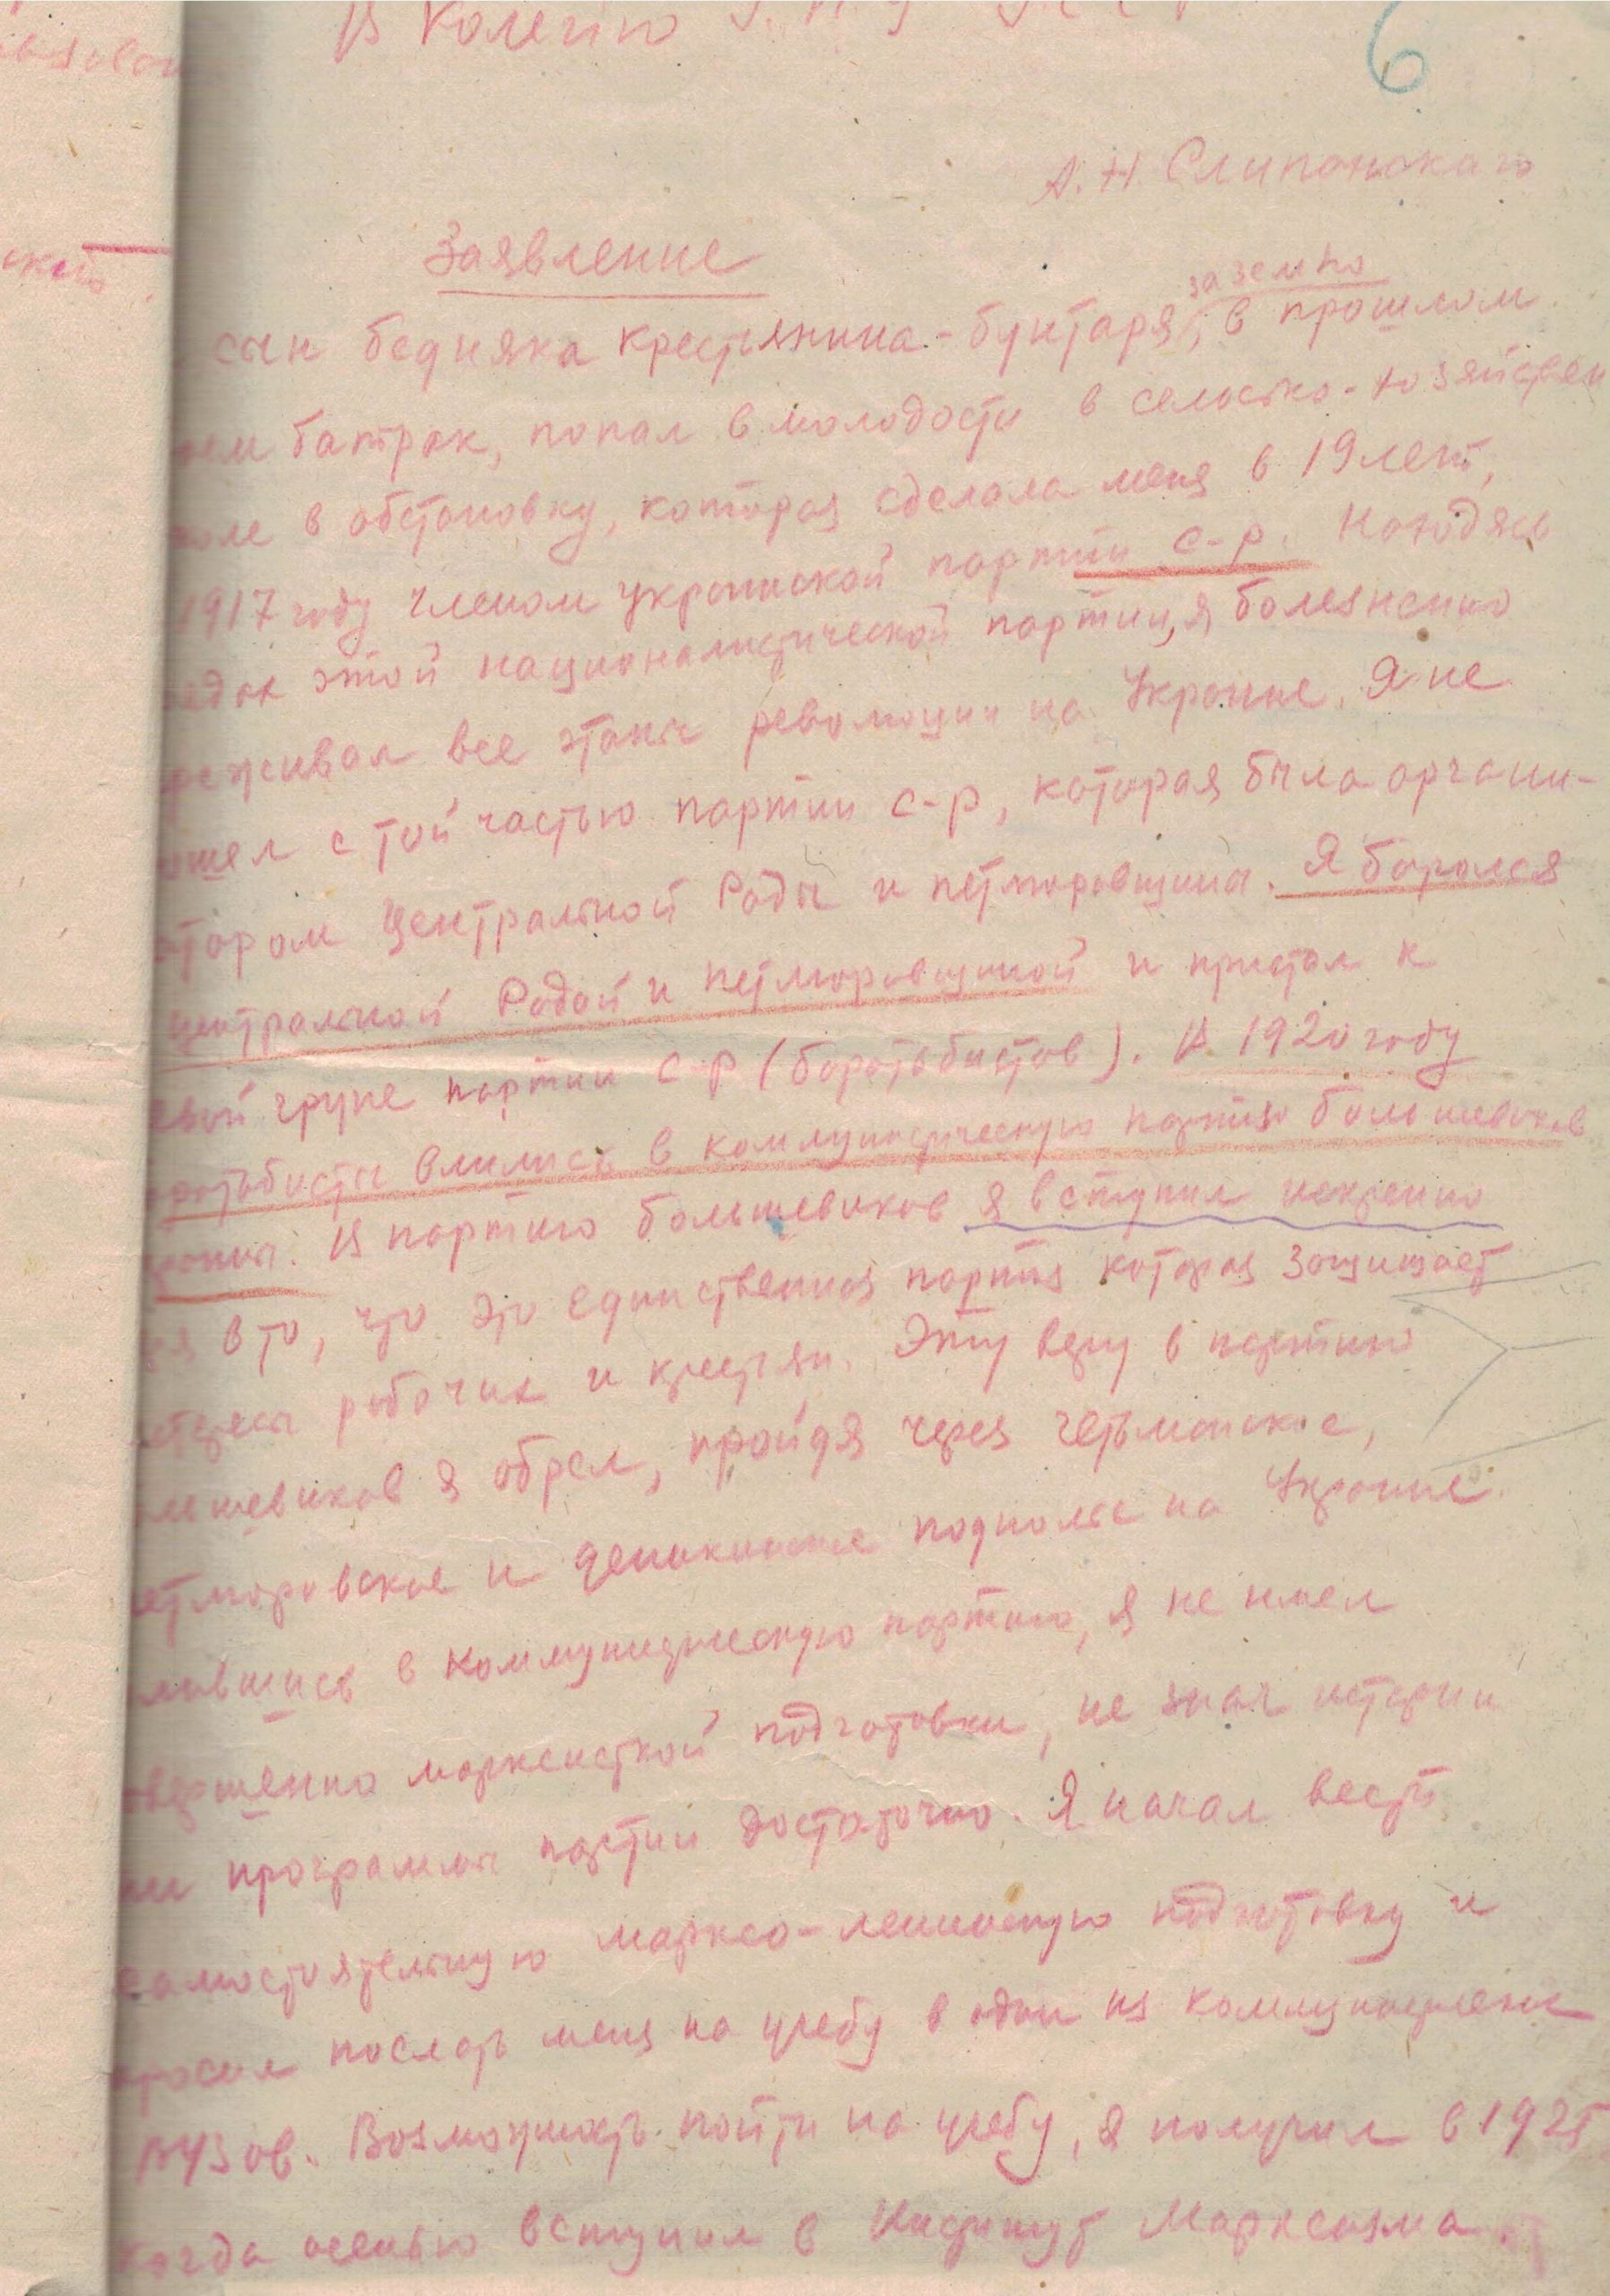 В Колегию Г.П.У У.С.С.Р
6
А. Н. Слипанскаго
Заявление
заземлю
сын бедняка крестьянина-бунтаря, в прошлом
батрак, попал в молодости в сельско-хозяйствен
в обстановку, которая сделала меня в 19 лет,
1917 году членом украинской партии с-р. Находясь
рядах этой националистической партии, я болезненно
реживал все этапы революции на Украине. Я не
ошел с той частью партии с-р, которая была органи-
атором Центральной Рады и петлюровщины. Я боролся
центральной Радой и петлюровщиной и пристал к
евой групе партии с-р (боротьбистов). В 1920 году
оротьбисты влились в коммунистическую партию большевиков
краины. В партию большевиков я вступил искренно
ря в то, что это единственная партия которая защищает
нтересы рабочих и крестьян. Эту веру в партию
льшевиков я обрел, пройдя через гетьманское,
етлюровское и деникинское подполье на Украине.
лившись в коммунистическую партию, я не имел
овершенно марксисткой подготовки, не знал истории
ни программы партии достаточно. Я начал вести
самостоятельную марксо-ленинскую подготовку и
просил послать меня на учебу в один из коммунистическ
ВУЗов. Возможность пойти на учебу, я получил в 1925
когда осенью вступил в Институт Марксизма.